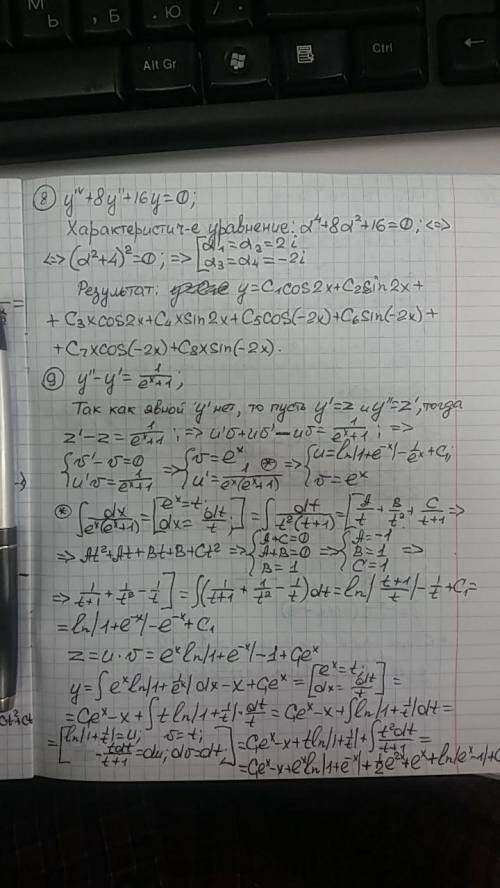 М Ь , Б . Ю / .
Alt Gr Ctrl
⑧ y^IV+8y''+16y=0;
Характеристич-е уравнение: α⁴+8α²+16=0; <=>
<=> (α²+4)²=0; => [α₁=α₂=2i
α₃=α₄=-2i
Результат: y=C₁cos2x+C₂sin2x+
+C₃xcos2x+C₄xsin2x+C₅cos(-2x)+C₆sin(-2x)+
+C₇xcos(-2x)+C₈xsin(-2x).
⑨ y''-y'=1/(eˣ+1);
Так как явной y нет, то пусть y'=z и y''=z', тогда
z'-z=1/(eˣ+1); => u'v+uv'-uv=1/(eˣ+1); =>
{v'-v=0 => {v=eˣ => {u=ln|1+e⁻ˣ|-1/eˣ+C₁;
u'v=1/(eˣ+1) u'=1/(eˣ(eˣ+1)) * v=eˣ
* ∫dx/(eˣ(eˣ+1))=[eˣ=t; dx=dt/t]=∫dt/(t²(t+1))=[A/t+B/t²+C/(t+1) =>
=> At²+At+Bt+B+Ct² => {A+C=0 A+B=0 B=1 => {A=-1 B=1 C=1 =>
=> 1/(t+1)+1/t²-1/t]=∫(1/(t+1)+1/t²-1/t)dt=ln|(t+1)/t|-1/t+C₁=
=ln|1+e⁻ˣ|-e⁻ˣ+C₁
z=u·v=eˣln|1+e⁻ˣ|-1+C₁eˣ
y=∫eˣln|1+1/eˣ|dx-x+C₁eˣ=[eˣ=t; dx=dt/t]=
=C₁eˣ-x+∫tln|1+1/t|·dt/t=C₁eˣ-x+∫ln|1+1/t|dt=
=[ln|1+1/t|=u, v=t; -tdt/(t+1)=du, dv=dt.]=C₁eˣ-x+tln|1+1/t|+∫t²dt/(t+1)=
=C₁eˣ-x+eˣln|1+e⁻ˣ|+½e²ˣ+eˣ+ln|eˣ-1|+C